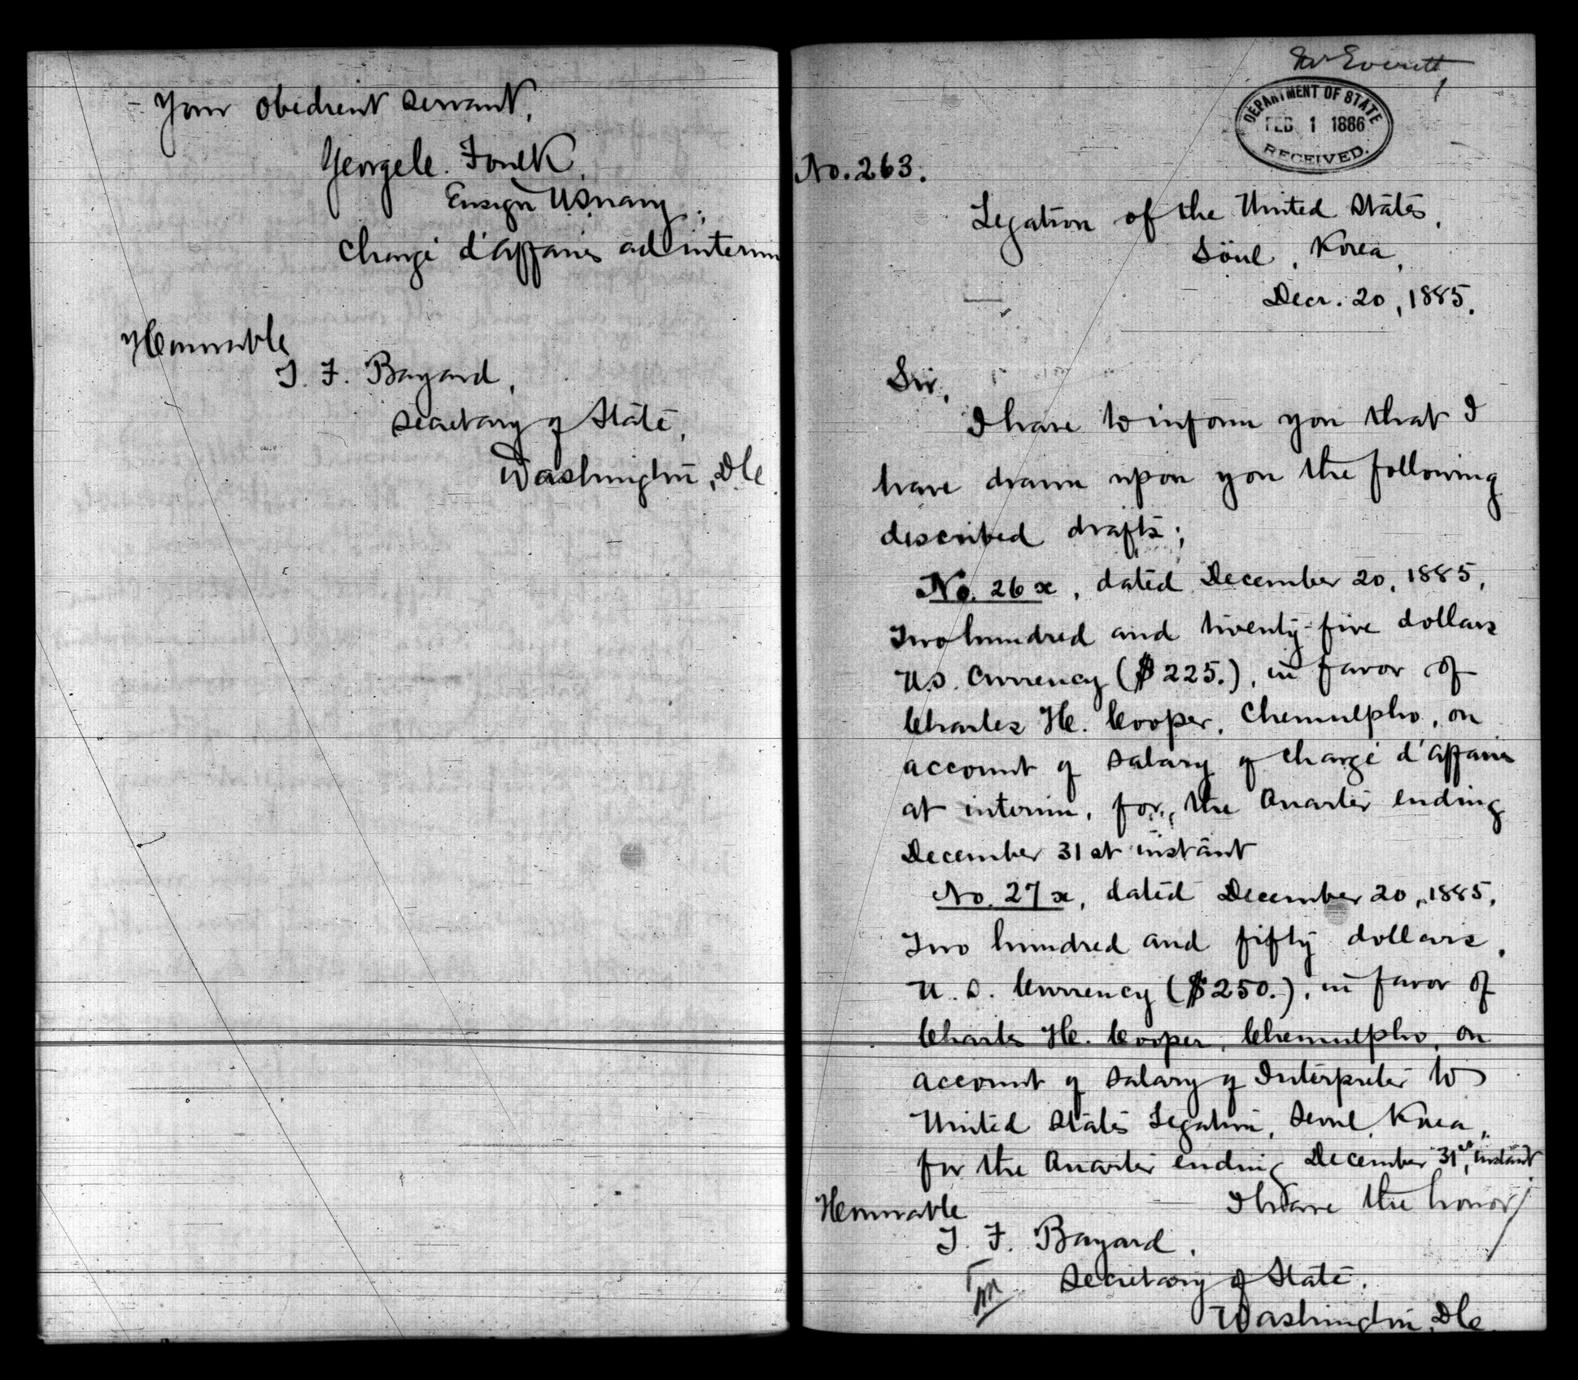 Your obedient servant,
George C. Foulk,
Ensign U.S. Navy,
Chargé d'affaires ad interim
Honorable
T. F. Bayard,
Secretary of State,
Washington, D.C.
Mr Everett
DEPARTMENT OF STATE
FEB 1 1886
RECEIVED.
No. 263.
Legation of the United States,
Söul, Korea,
Decr. 20, 1885.
Sir,
I have to inform you that I
have drawn upon you the following
described drafts;
No. 26 x, dated December 20, 1885,
Two hundred and twenty-five dollars
U.S. Currency ($225.), in favor of
Charles H. Cooper, Chemulpho, on
account of Salary of Chargé d'affaires
at interim, for the Quarter ending
December 31st instant
No. 27 x, dated December 20, 1885,
Two hundred and fifty dollars,
U.S. Currency ($250.), in favor of
Charles H. Cooper, Chemulpho, on
account of Salary of Interpreter to
United States Legation, Seoul, Korea,
for the Quarter ending December 31st, instant
I have the honor
Honorable
T. F. Bayard,
Secretary of State,
Washington, D.C.